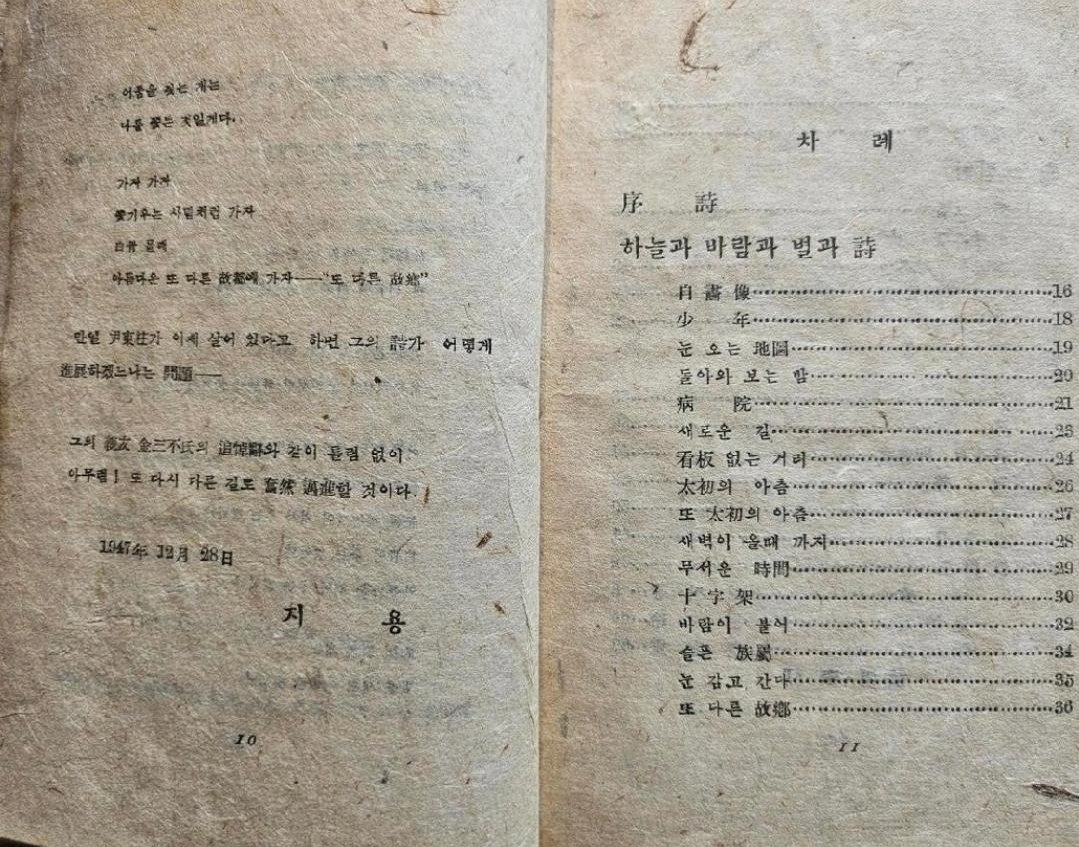 어둠을 짖는 개는
나를 쫓는 것일게다.
가자 가자
쫓기우는 사람처럼 가자
白骨 몰래
아름다운 또 다른 故鄕에 가자——“또 다른 故鄕”
만일 尹東柱가 이제 살어 있다고 하면 그의 詩가 어떻게
進展하겠느냐는 問題——
그의 親友 金三不氏의 追悼辭와 같이 틀림 없이
아무렴! 또 다시 다른 길로 奮然 邁進할 것이다.
1947年 12月 28日
지 용
10
차 례
序 詩
하늘과 바람과 별과 詩
自畵像……16
少 年……18
눈 오는 地圖……19
돌아와 보는 밤……20
病 院……21
새로운 길……23
看板 없는 거리……24
太初의 아츰……26
또 太初의 아츰……27
새벽이 올때 까지……28
무서운 時間……29
十字架……30
바람이 불어……32
슬픈 族屬……34
눈 감고 간다……35
또 다른 故鄕……36
11